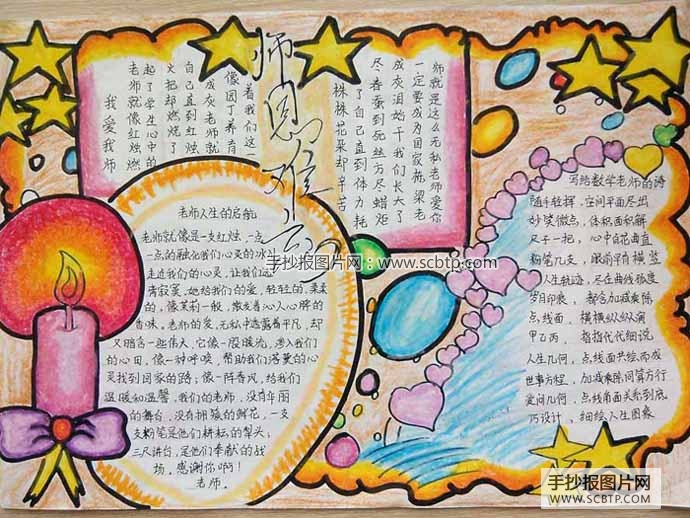 师恩难忘
我爱我师
老师就像红烛燃
起了学生心中的
火把却燃烧了
自己直到红烛
成灰老师就
像园丁养育
着我们这一
株株花朵却辛苦
了自己直到体力耗
尽春蚕到死丝方尽蜡炬
成灰泪始干我们长大了
一定要成为国家栋梁老
师就是这么无私老师爱你
老师人生的启航
老师就像是一支红烛,一点
一点的融化我们心灵的冰
走进我们的心灵,让我们远
离寂寞。她给我们的爱,轻轻的,柔柔
的,像茉莉一般,散发着沁人心脾的
香味。老师的爱,无私中透露着平凡,却
又暗含一些伟大,它像一股暖流,渗入我们
的心田,像一种呼唤,帮助我们落寞的心
灵找到回家的路;像一阵春风,给我们
温暖和温馨,我们的老师,没有华丽
的舞台,没有拥簇的鲜花,一支
支粉笔是他们耕耘的犁头;
三尺讲台,是他们奉献的战
场。感谢你啊!
老师。
写给数学老师的诗
随手轻挥,空间平面尽出
妙笑微点,体积面积解
尺子一把,心中自有曲直
粉笔几支,眼前平有横竖
人生轨迹,尽在曲线弧度
岁月印痕,都含加减乘除
点线面,横横纵纵纵演
甲乙丙,指指代代细说
人生几何,点线面共绘而成
世事方程,加减乘除同算方行
爱问几何,点线角面关系到底
巧设计、细绘人生图象
手抄报图片网:www.scbtp.com
手抄报图片网
WWW.SCBTP.COM